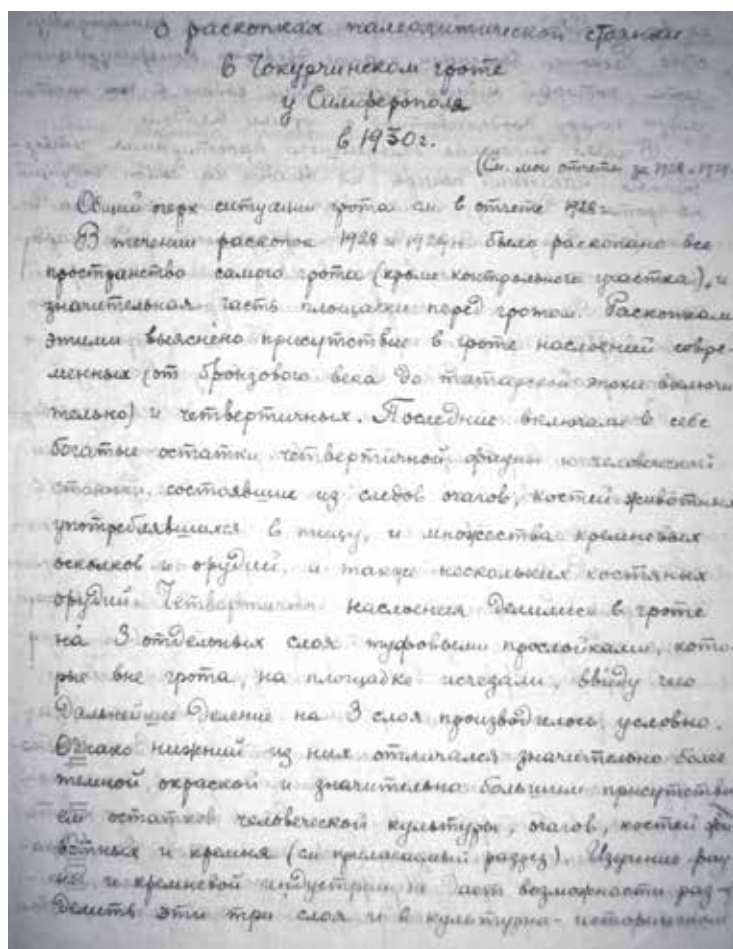 О раскопках палеолитической стоянки
в Чокурчинском гроте
у Симферополя
в 1930 г.
(См. мои отчеты за 1928 и 1929
Общий очерк ситуации грота см в отчете 1928 г.
В течении раскопок 1928 и 1929 гг было раскопано все
пространство самого грота (кроме контрольного участка), и
значительная часть площадки перед гротом. Раскопками
этими выяснено присутствие в гроте наслоений совре-
менных (от бронзового века до татарской эпохи включи
тельно) и четвертичных. Последние включали в себе
богатые остатки четвертичной фауны и человеческой
стоянки, состоявшие из следов очагов, костей животных
употреблявшихся в пищу, и множества кремневых
осколков и орудий, и также нескольких костяных
орудий. Четвертичные наслоения делились в гроте
на 3 отдельных слоя туфовыми прослойками, кото-
рые вне грота, на площадке исчезали, ввиду чего
дальнейшее деление на 3 слоя производилось условно.
Однако нижний из них отличался значительно более
темной окраской и значительно большим присутстви
ем остатков человеческой культуры, очагов, костей жи
вотных и кремня (см прилагаемый разрез). Изучение фау
ны и кремневой индустрии не дает возможности раз-
делить эти три слоя и в культурно-историческом